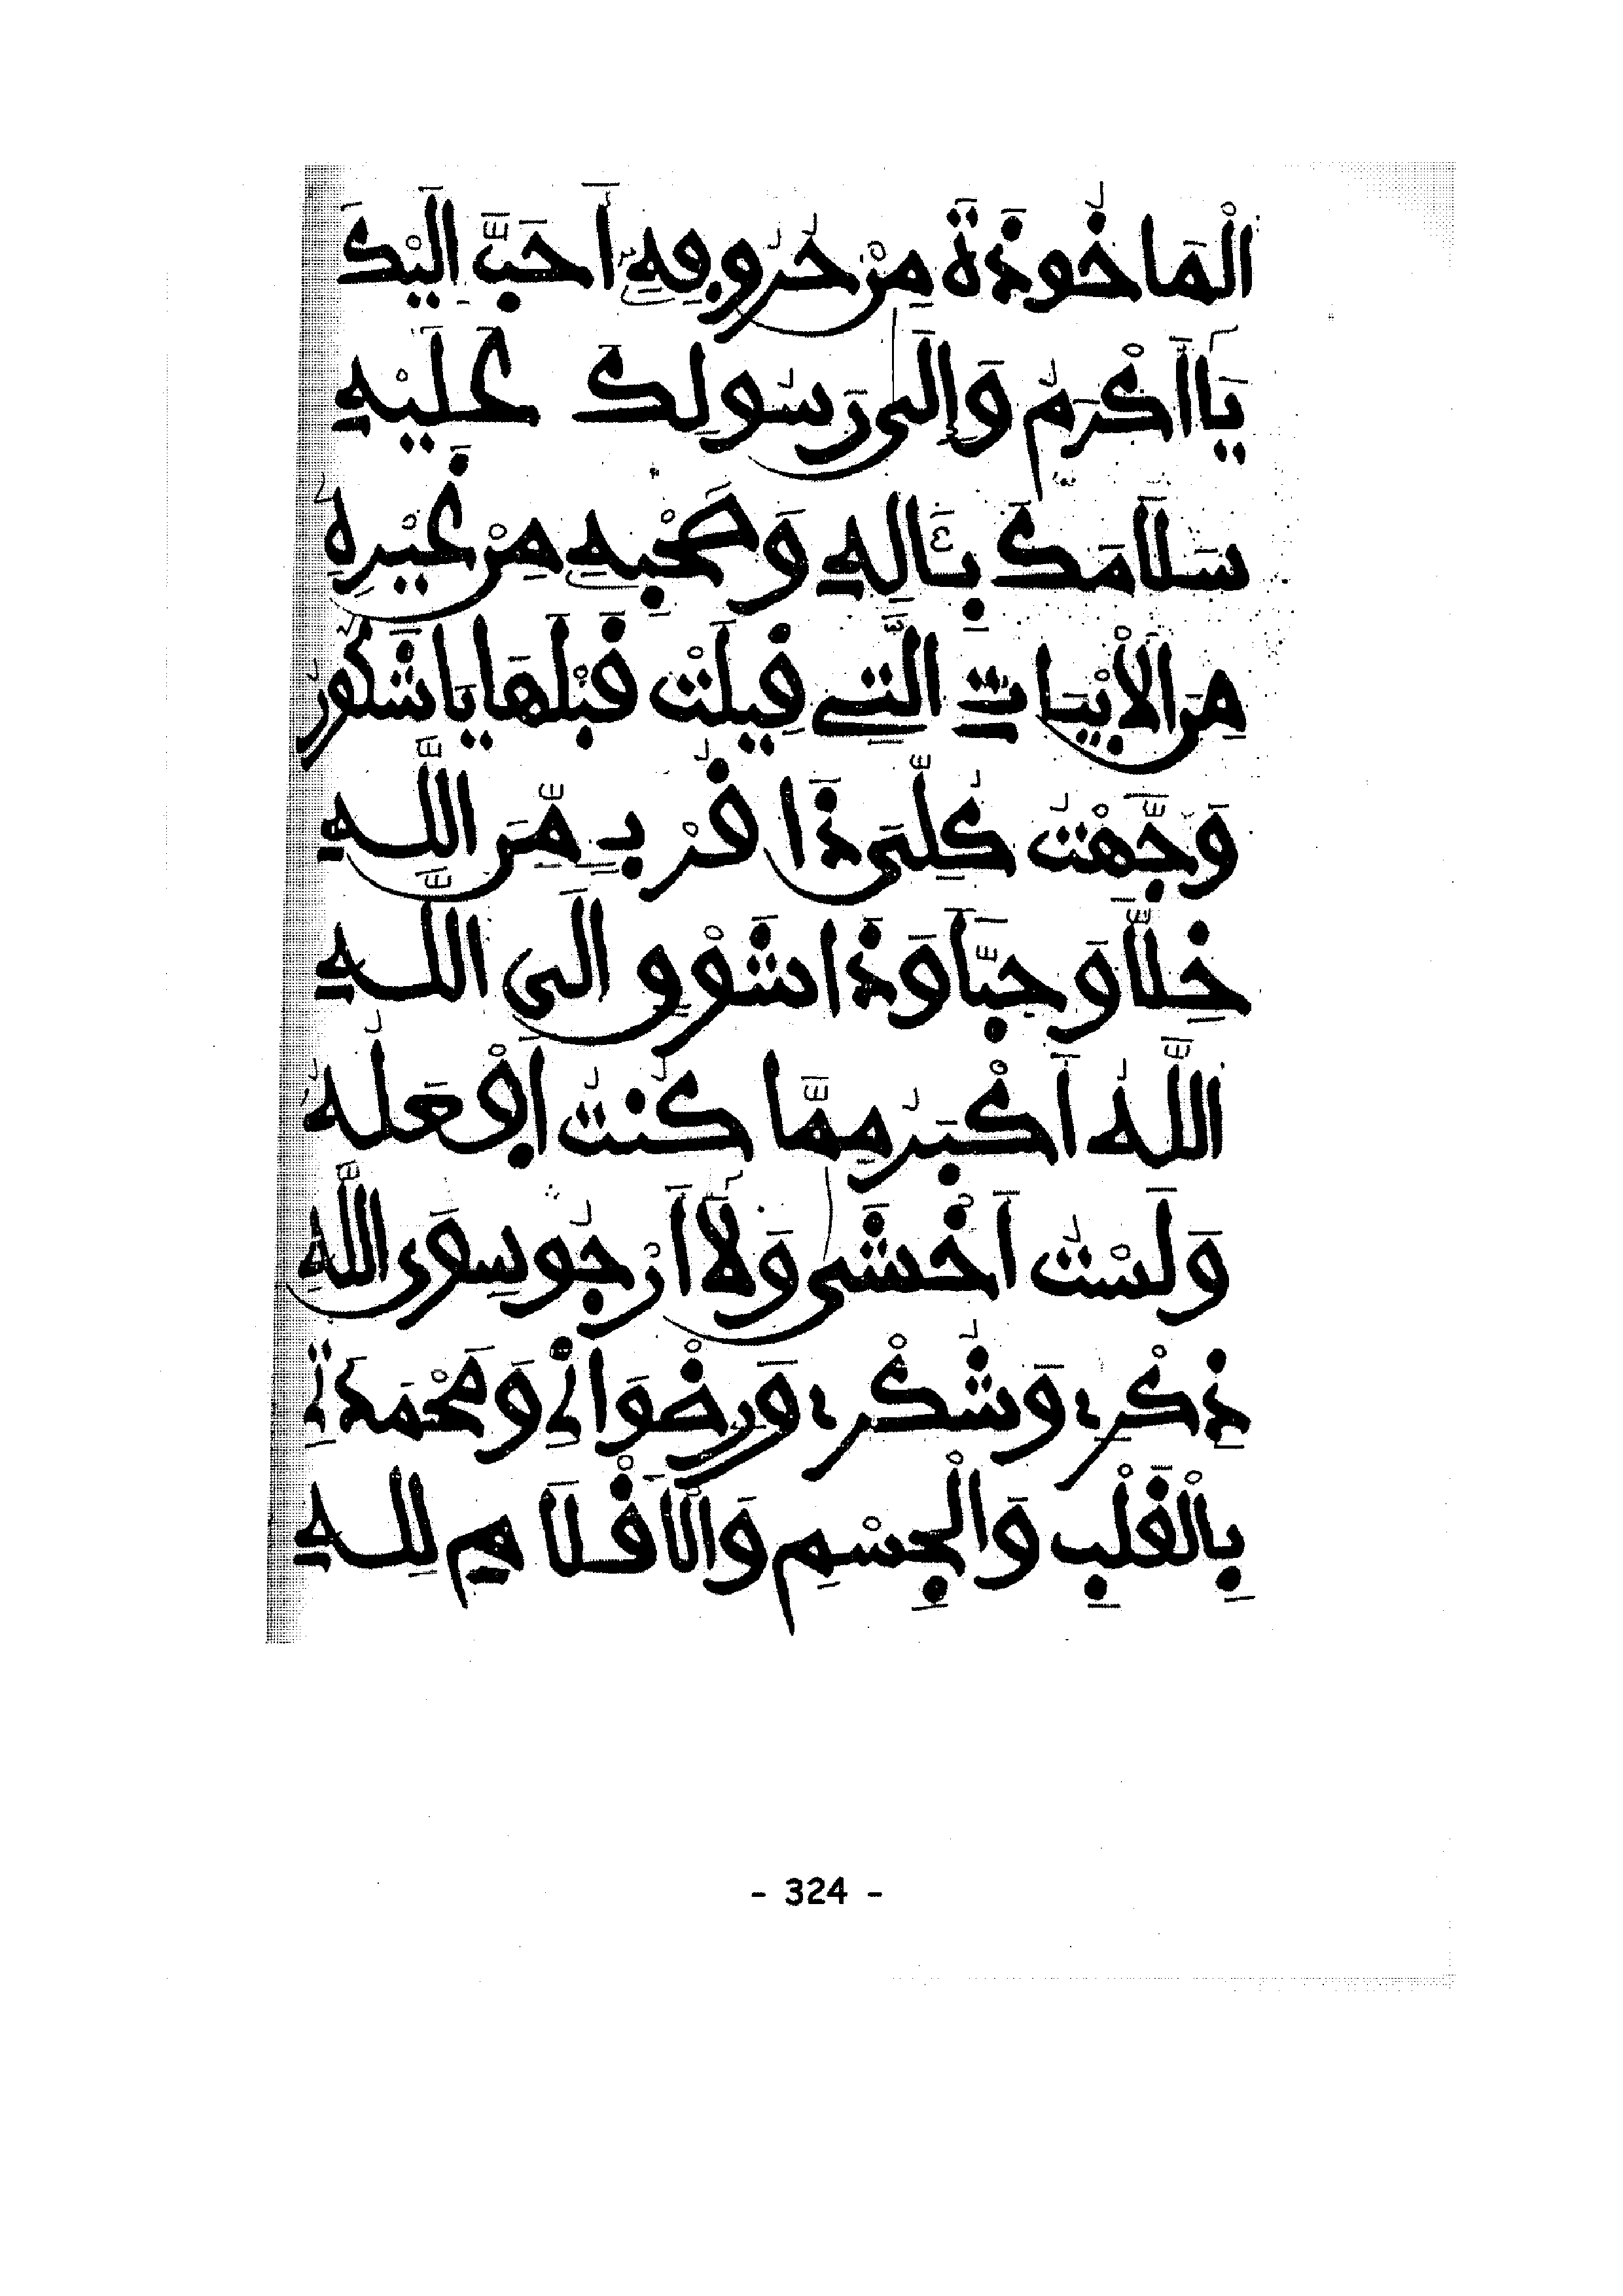 الْمَاخُوذَةَ مِنْ حُرُوفِهِ أَحَبَّ إِلَيْكَ
يَا أَكْرَمُ وَإِلَى رَسُولِكَ عَلَيْهِ
سَلَامَكَ بِـَٔالِهِ وَصَحْبِهِ مِنْ غَيْرِهِ
مِنَ الْأَبْيَاتِ الَّتِي قِيلَتْ قَبْلَهَا يَا شَكُورُ
وَجَّهْتُ كُلِّىَ ذَا قُرْبٍ مِّنَ اللَّهِ
خِلًّا وَحِبًّا وَذَا شَوْقٍ إِلَى اللَّهِ
اللَّهُ أَكْبَرُ مِمَّا كُنْتُ أَفْعَلُهُ
وَلَسْتُ أَخْشَى وَلَا أَرْجُو سِوَى اللَّهِ
ذِكْرِي وَشُكْرِي وَرِضْوَانِي وَمَحْمَدَتِي
بِالْقَلْبِ وَالْجِسْمِ وَالْأَقْلَامِ لِلَّهِ
- 324 -